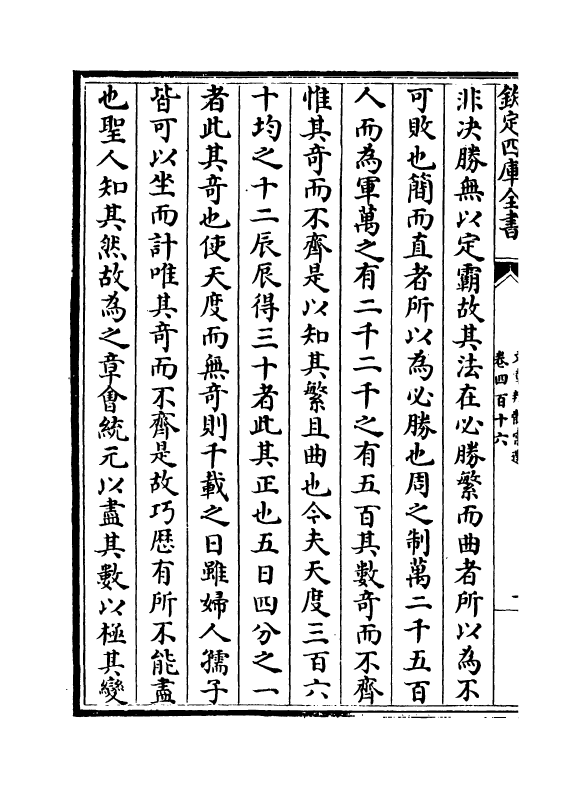 欽定四庫全書
卷四百十六
非決勝無以定霸故其法在必勝繁而曲者所以為不
可敗也簡而直者所以為必勝也周之制萬二千五百
人而為軍萬之有二千二千之有五百其數奇而不齊
惟其奇而不齊是以知其繁且曲也今夫天度三百六
十均之十二辰辰得三十者此其正也五日四分之一
者此其奇也使天度而無奇則千載之日雖婦人孺子
皆可以坐而計唯其奇而不齊是故巧歴有所不能盡
也聖人知其然故為之章會統元以盡其數以極其變